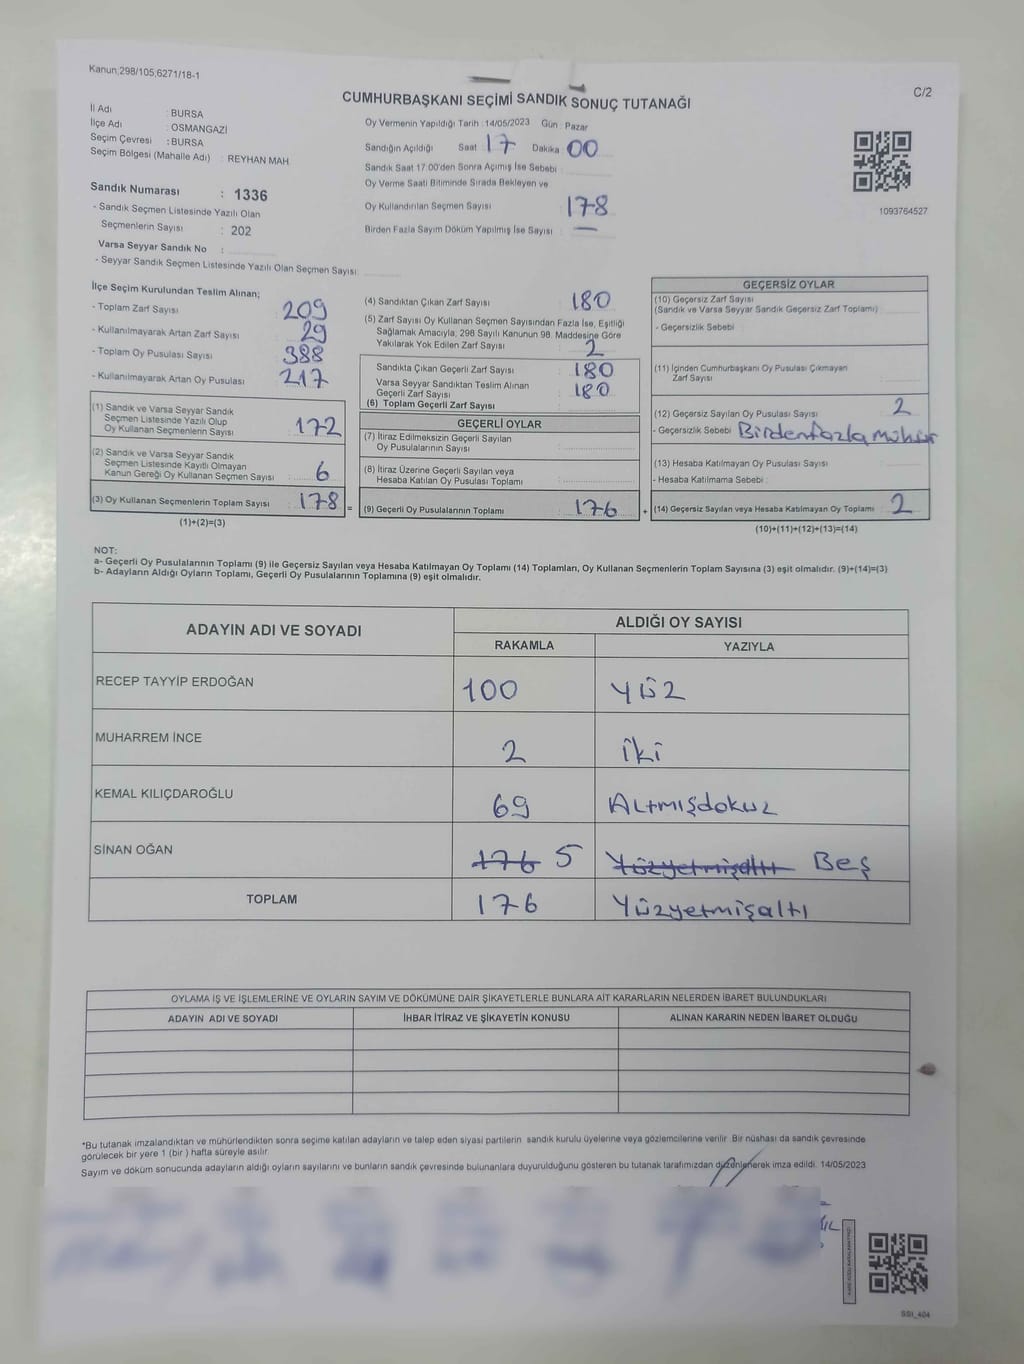 Kanun;298/105;6271/18-1
C/2
CUMHURBAŞKANI SEÇİMİ SANDIK SONUÇ TUTANAĞI
İl Adı : BURSA
İlçe Adı : OSMANGAZİ
Seçim Çevresi : BURSA
Seçim Bölgesi (Mahalle Adı) : REYHAN MAH.
Sandık Numarası : 1336
- Sandık Seçmen Listesinde Yazılı Olan
Seçmenlerin Sayısı : 202
Varsa Seyyar Sandık No :
- Seyyar Sandık Seçmen Listesinde Yazılı Olan Seçmen Sayısı:
Oy Vermenin Yapıldığı Tarih :14/05/2023 Gün : Pazar
Sandığın Açıldığı Saat : 17 Dakika : 00
Sandık Saat 17:00'den Sonra Açımış İse Sebebi :
Oy Verme Saati Bitiminde Sırada Bekleyen ve
Oy Kullandırılan Seçmen Sayısı : 178
Birden Fazla Sayım Döküm Yapılmış İse Sayısı : —
1093764527
İlçe Seçim Kurulundan Teslim Alınan;
- Toplam Zarf Sayısı : 209
- Kullanılmayarak Artan Zarf Sayısı : 29
- Toplam Oy Pusulası Sayısı : 388
- Kullanılmayarak Artan Oy Pusulası : 217
(1) Sandık ve Varsa Seyyar Sandık
Seçmen Listesinde Yazılı Olup
Oy Kullanan Seçmenlerin Sayısı : 172
(2) Sandık ve Varsa Seyyar Sandık
Seçmen Listesinde Kayıtlı Olmayan
Kanun Gereği Oy Kullanan Seçmen Sayısı : 6
(3) Oy Kullanan Seçmenlerin Toplam Sayısı : 178 =
(1)+(2)=(3)
(4) Sandıktan Çıkan Zarf Sayısı : 180
(5) Zarf Sayısı Oy Kullanan Seçmen Sayısından Fazla İse, Eşitliği
Sağlamak Amacıyla; 298 Sayılı Kanunun 98. Maddesine Göre
Yakılarak Yok Edilen Zarf Sayısı : 2
Sandıkta Çıkan Geçerli Zarf Sayısı : 180
Varsa Seyyar Sandıktan Teslim Alınan
Geçerli Zarf Sayısı : 180
(6) Toplam Geçerli Zarf Sayısı :
GEÇERLİ OYLAR
(7) İtiraz Edilmeksizin Geçerli Sayılan
Oy Pusulasının Sayısı :
(8) İtiraz Üzerine Geçerli Sayılan veya
Hesaba Katılan Oy Pusulası Toplamı :
(9) Geçerli Oy Pusulalarının Toplamı : 176 +
GEÇERSİZ OYLAR
(10) Geçersiz Zarf Sayısı
(Sandık ve Varsa Seyyar Sandık Geçersiz Zarf Toplamı) :
- Geçersizlik Sebebi :
(11) İçinden Cumhurbaşkanı Oy Pusulası Çıkmayan
Zarf Sayısı :
(12) Geçersiz Sayılan Oy Pusulası Sayısı : 2
- Geçersizlik Sebebi : Birden fazla mühür
(13) Hesaba Katılmayan Oy Pusulası Sayısı :
- Hesaba Katılmama Sebebi :
(14) Geçersiz Sayılan veya Hesaba Katılmayan Oy Toplamı : 2
(10)+(11)+(12)+(13)=(14)
NOT:
a- Geçerli Oy Pusulalarının Toplamı (9) ile Geçersiz Sayılan veya Hesaba Katılmayan Oy Toplamı (14) Toplamları, Oy Kullanan Seçmenlerin Toplam Sayısına (3) eşit olmalıdır. (9)+(14)=(3)
b- Adayların Aldığı Oyların Toplamı, Geçerli Oy Pusulalarının Toplamına (9) eşit olmalıdır.
ADAYIN ADI VE SOYADI
ALDIĞI OY SAYISI
RAKAMLA YAZIYLA
RECEP TAYYİP ERDOĞAN 100 YÜZ
MUHARREM İNCE 2 iki
KEMAL KILIÇDAROĞLU 69 Altmışdokuz
SİNAN OĞAN 176 5 Yüzyetmişaltı Beş
TOPLAM 176 Yüzyetmişaltı
OYLAMA İŞ VE İŞLEMLERİNE VE OYLARIN SAYIM VE DÖKÜMÜNE DAİR ŞİKAYETLERLE BUNLARA AİT KARARLARIN NELERDEN İBARET BULUNDUKLARI
ADAYIN ADI VE SOYADI İHBAR İTİRAZ VE ŞİKAYETİN KONUSU ALINAN KARARIN NEDEN İBARET OLDUĞU
*Bu tutanak imzalandıktan ve mühürlendikten sonra seçime katılan adayların ve talep eden siyasi partilerin sandık kurulu üyelerine veya gözlemcilerine verilir. Bir nüshası da sandık çevresinde
görülecek bir yere 1 (bir ) hafta süreyle asılır.
Sayım ve döküm sonucunda adayların aldığı oyların sayılarını ve bunların sandık çevresinde bulunanlara duyurulduğunu gösteren bu tutanak tarafımızdan düzenlenerek imza edildi. 14/05/2023
SSI_404